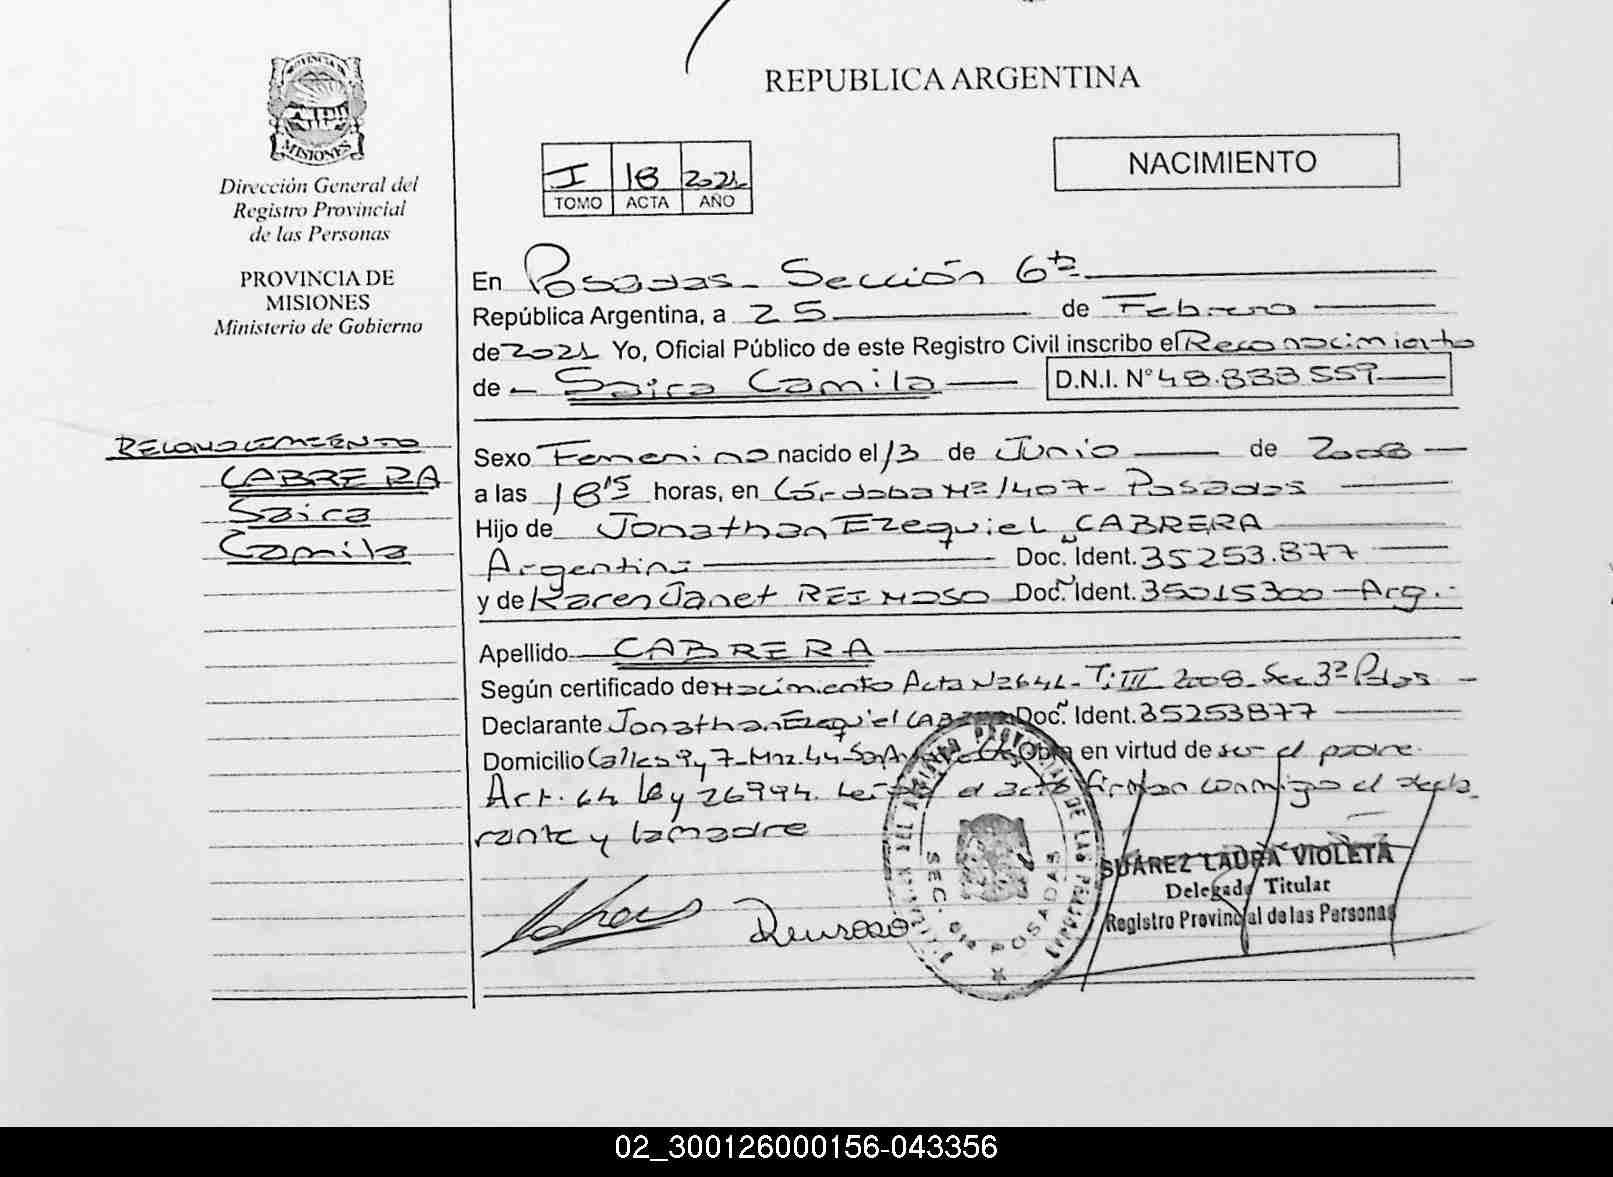 PROVINCIA DE
MISIONES
Dirección General del
Registro Provincial
de las Personas
PROVINCIA DE
MISIONES
Ministerio de Gobierno
RECONOCIMIENTO
CABRERA
Saira
Camila
REPUBLICA ARGENTINA
I 18 2021
TOMO ACTA AÑO
NACIMIENTO
En Posadas - Sección 6ta
República Argentina, a 25 de Febrero
de 2021 Yo, Oficial Público de este Registro Civil inscribo el Reconocimiento
de - Saira Camila D.N.I. N° 48.833 559
Sexo Femenino nacido el 13 de Junio de 2008
a las 18 15 horas, en Córdoba Nº 1407 - Posadas
Hijo de Jonathan Ezequiel CABRERA
Argentina Doc. Ident. 35253.877
y de Karen Janet REINOSO Doc. Ident. 35015300 - Arg.
Apellido CABRERA
Según certificado de Nacimiento Acta Nº 2641 - T: III 2008 - Sec 3ª Pdas
Declarante Jonathan Ezequiel CABRERA Doc. Ident. 35253877
Domicilio Calles 9 y 7 - Mnz. 44 - en virtud de ser el padre.
Art. 64 Ley 26994. Leída el acta firman conmigo el decla
rante y la madre
Reinoso
SEC. 6ta POSADAS
SUAREZ LAURA VIOLETA
Delegada Titular
Registro Provincial de las Personas
02_300126000156-043356